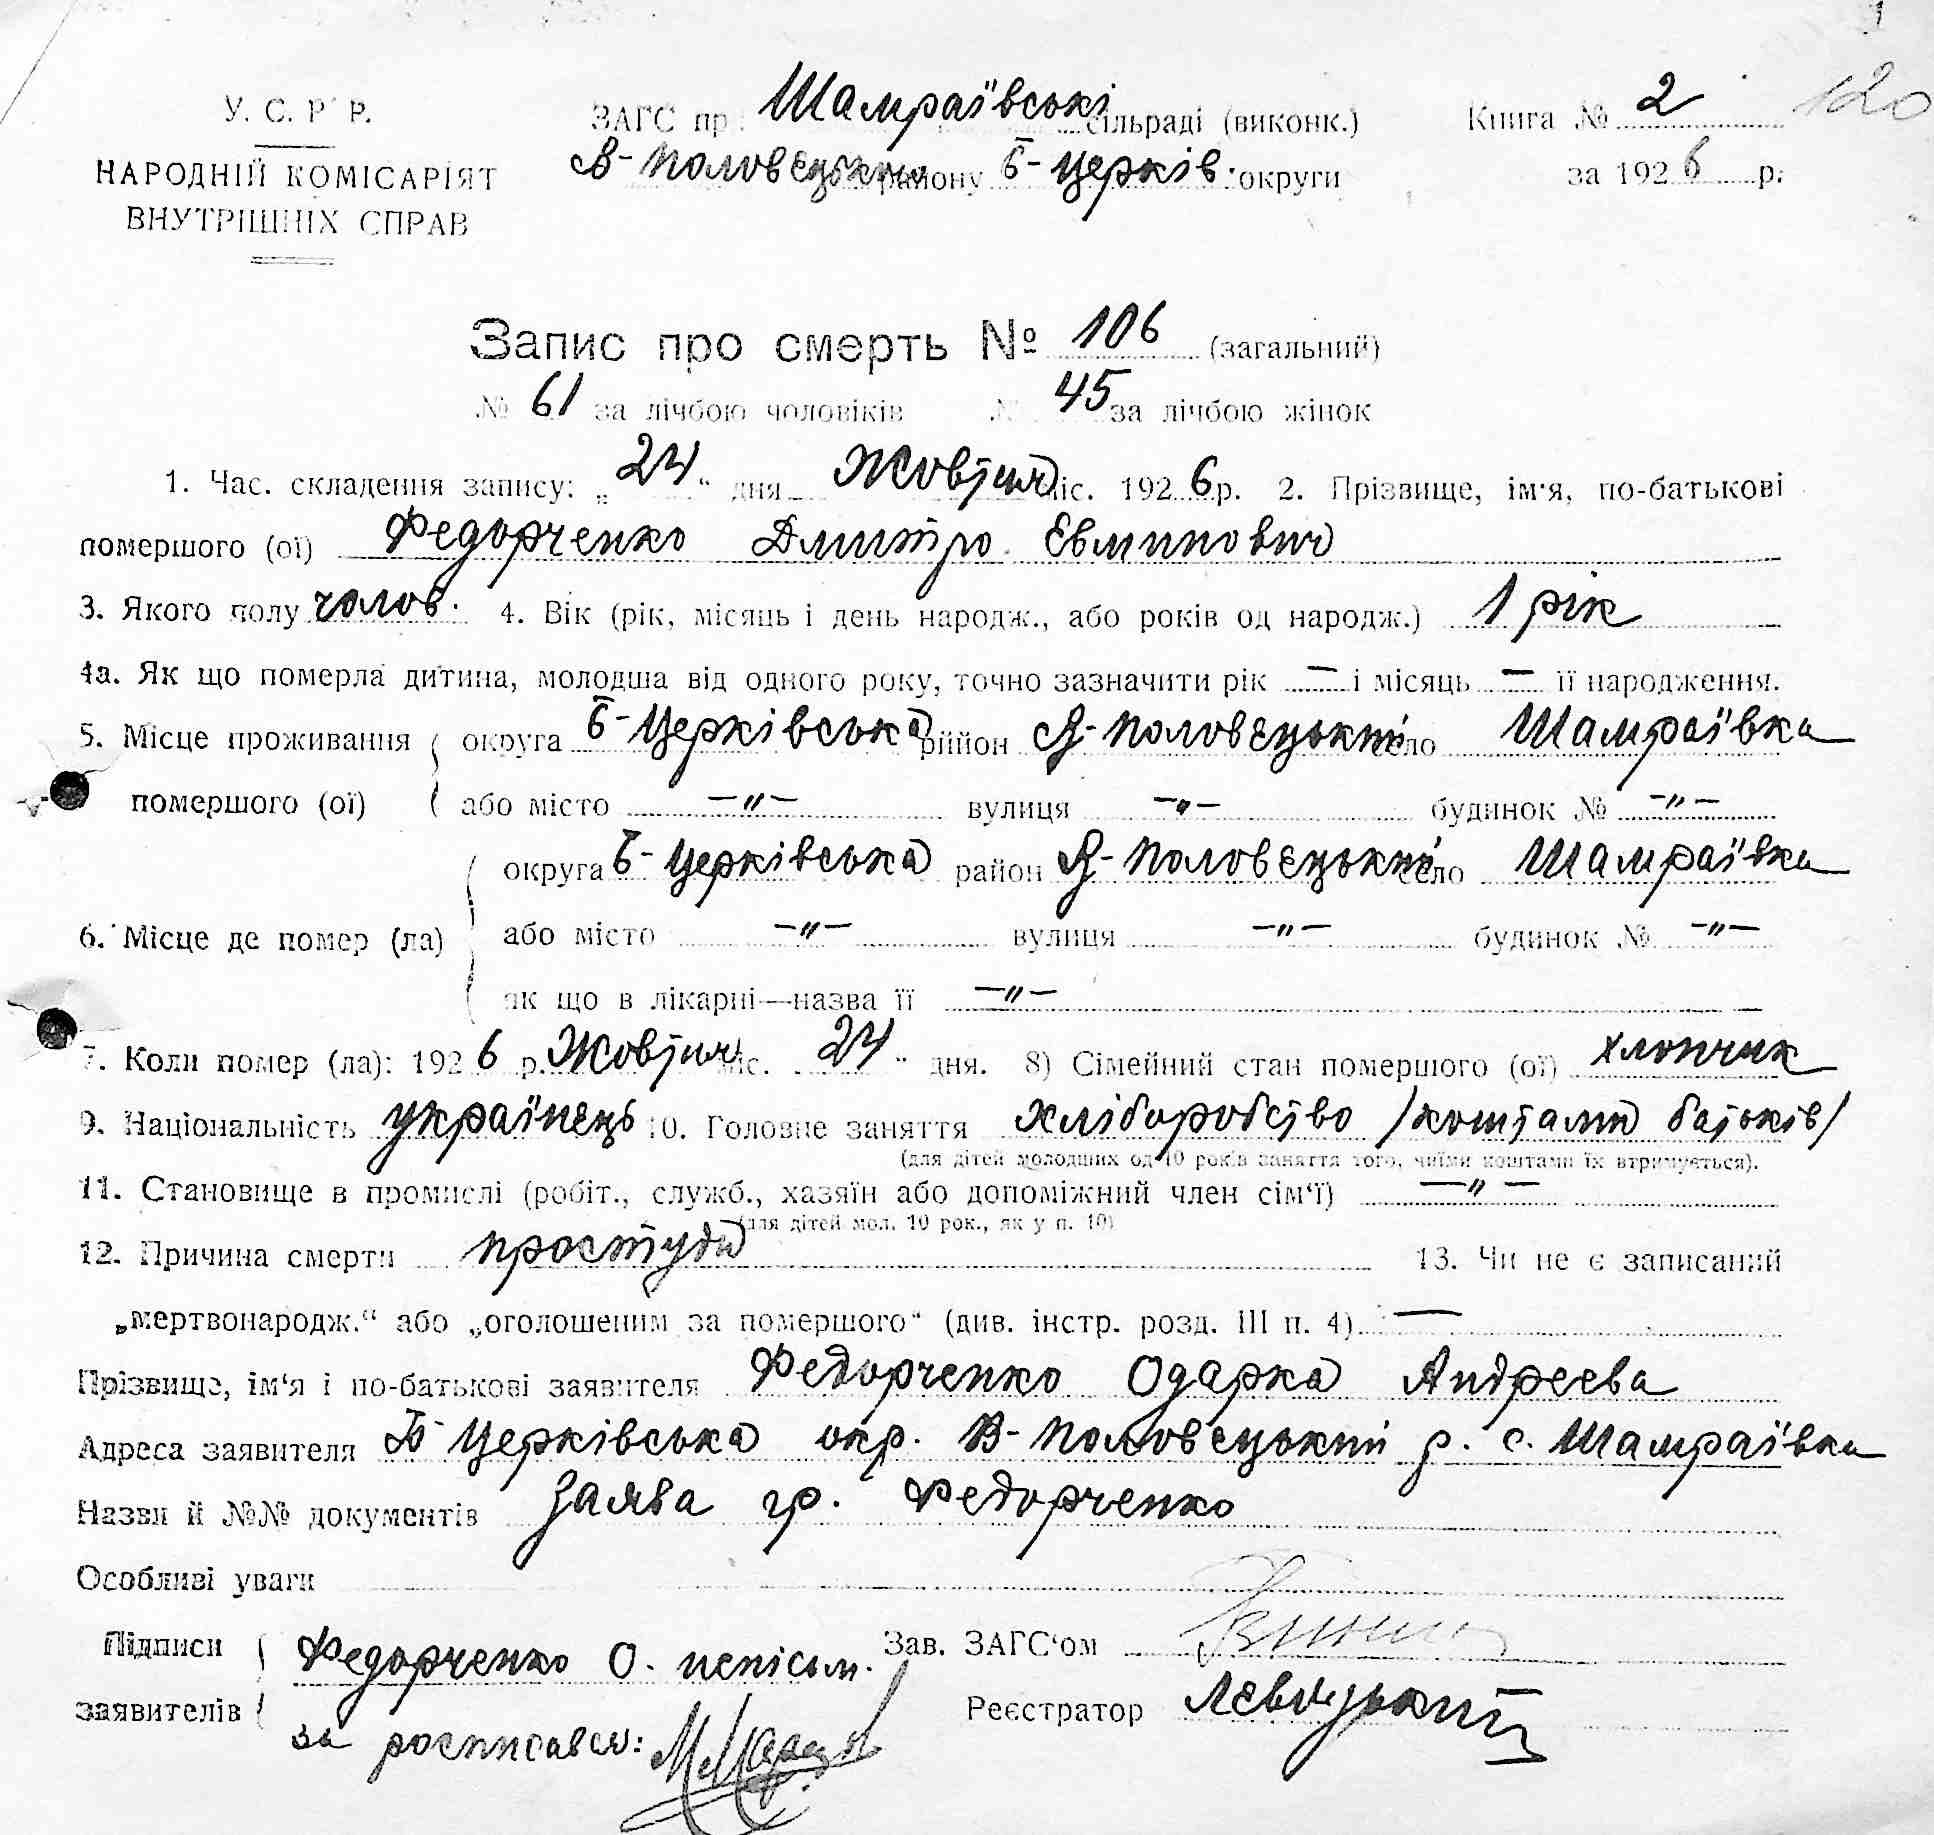 1
У. С. Р Р.
НАРОДНІЙ КОМІСАРІЯТ
ВНУТРІШНІХ СПРАВ
ЗАГС пр Шамраївські сільраді (виконк.)
В-Половецьк району Б-Церків. округи
Книга № 2 120
за 1926 р.
Запис про смерть № 106 (загальний)
№ 61 за лічбою чоловіків № 45 за лічбою жінок
1. Час складення запису: „24“ дня Жовтня міс. 1926 р. 2. Прізвище, ім'я, по-батькові
помершого (ої) Федорченко Дмитро Евминович
3. Якого полу чолов. 4. Вік (рік, місяць і день народж., або років од народж.) 1 рік
4а. Як що померла дитина, молодша від одного року, точно зазначити рік — і місяць — її народження.
5. Місце проживання помершого (ої) округа Б-Церківська район В-Половецький село Шамраївка
або місто —„— вулиця —„— будинок № —„—
6. Місце де помер (ла) округа Б-Церківська район В-Половецький село Шамраївка
або місто —„— вулиця —„— будинок № —„—
як що в лікарні—назва її —„—
7. Коли помер (ла): 1926 р. Жовтня міс. 24 “ дня. 8) Сімейний стан помершого (ої) хлопчик
9. Національність українець 10. Головне заняття хліборобство /коштами батьків/
(для дітей молодших од 10 років заняття того, чиїми коштами їх втримується).
11. Становище в промислі (робіт., служб., хазяїн або допоміжний член сім'ї) —„—
(для дітей мол. 10 рок., як у п. 10)
12. Причина смерти простуди 13. Чи не є записаний
„мертвонародж.“ або „оголошеним за помершого“ (див. інстр. розд. III п. 4) —
Прізвище, ім'я і по-батькові заявителя Федорченко Одарка Андреєва
Адреса заявителя Б Церківська окр. В-Половецький р. с. Шамраївка
Назви й №№ документів Заява гр. Федорченко
Особливі уваги
Підписи заявителів Федорченко О. непісьм.
Зав. ЗАГС'ом
за росписався:
Реєстратор Левицький